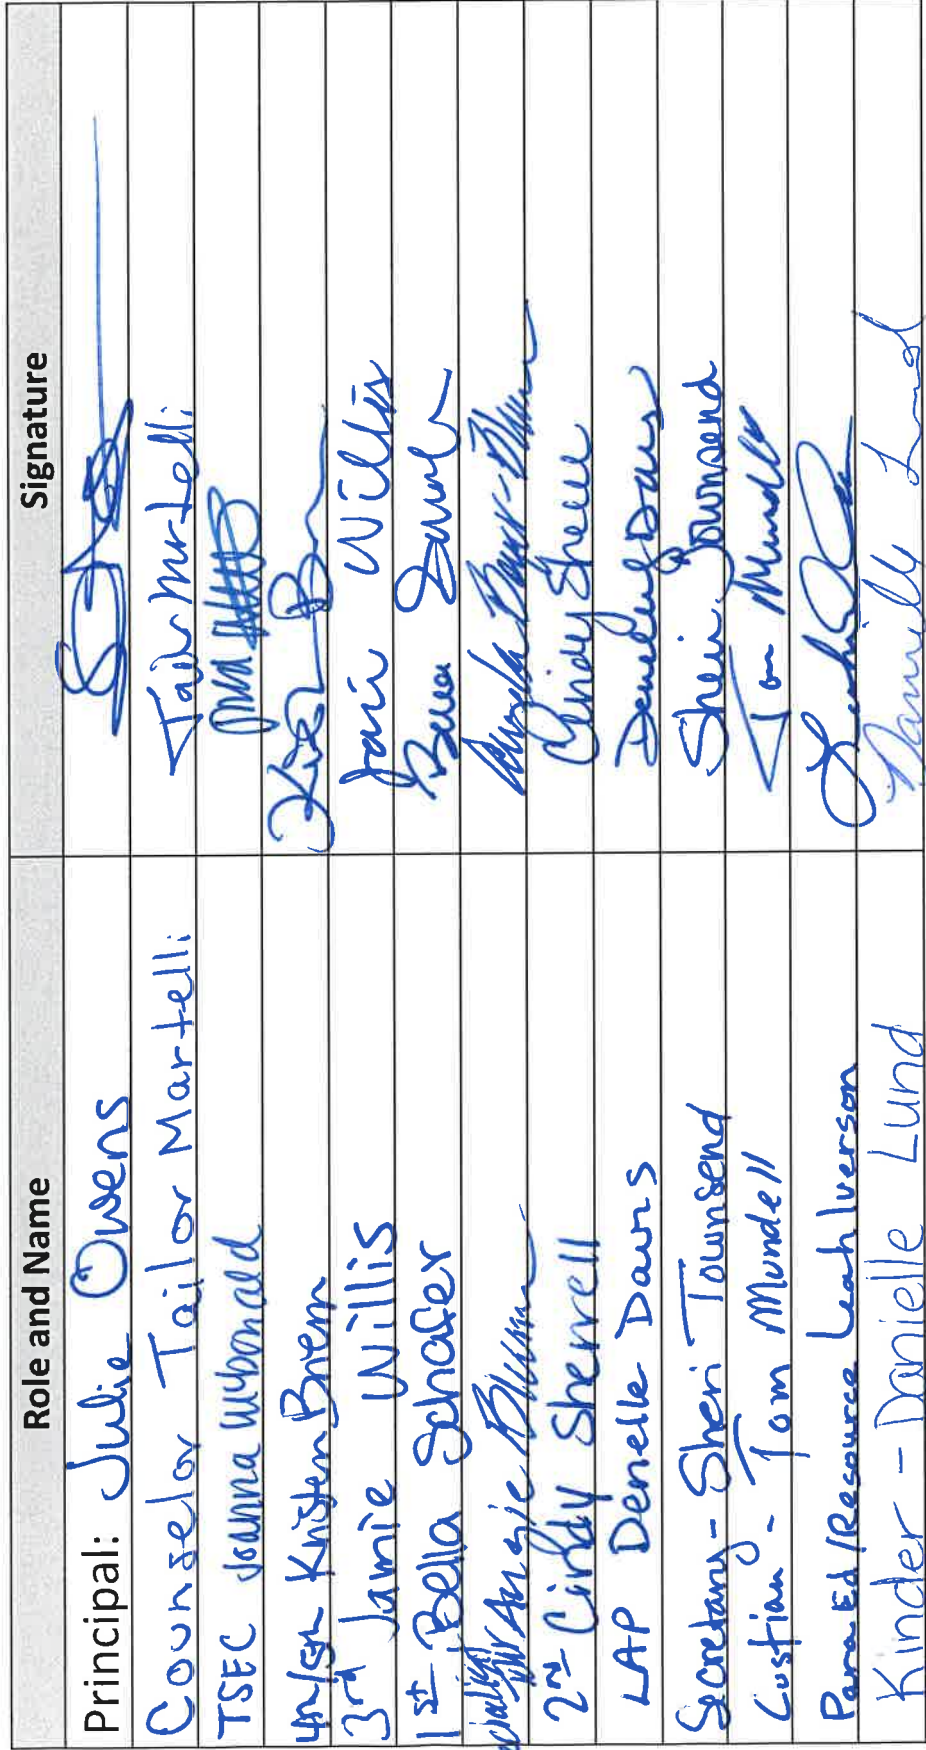 Role and Name Signature
Principal: Julie Owens
Counselor Tailor Martelli Tailor Martelli
TSEC Joanna McDonald
4th/5th Kristen Briem
3rd Jamie Willis Jamie Willis
1st Bella Schafer Bella
Angie Blum
2nd Cindy Sherrell Cindy Sherrell
LAP Denelle Davis Denelle Davis
Secretary - Sheri Townsend Sheri Townsend
Custian - Tom Mundell Tom Mundell
Para Ed/Resource Leah Iverson
Kinder - Danielle Lund Danielle Lund